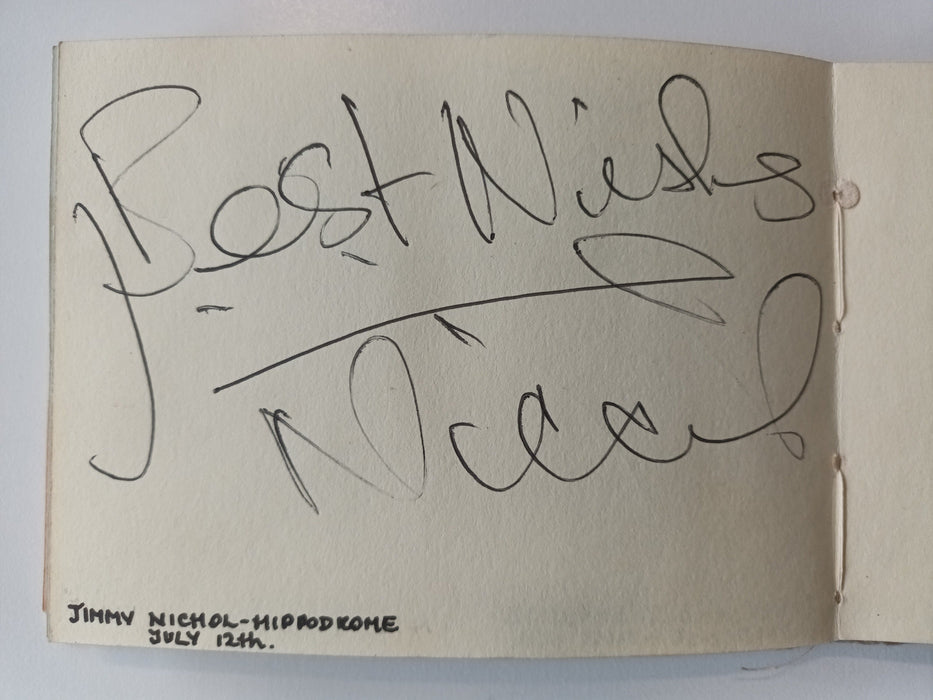 Best Wishes
J Nicol
JIMMY NICHOL-HIPPODROME
JULY 12th.